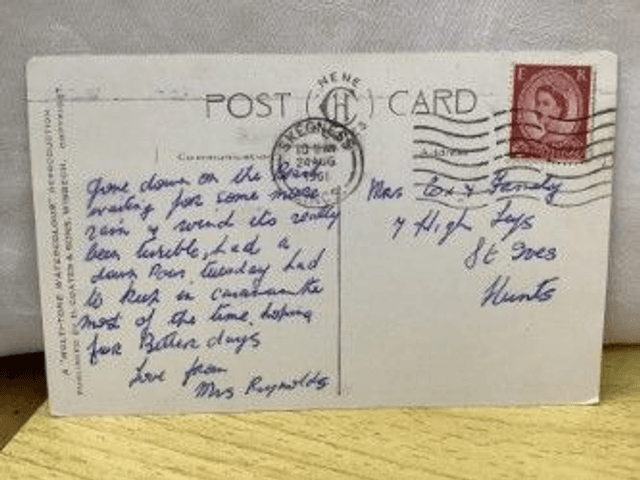 NENE
POST CH CARD
SKEGNESS
24 AUG
1961
E R
Communication
Address
Gone down on the
waiting for some more
rain & wind its really
been terrible, had a
down pour tuesday had
to keep in caravan the
most of the time, hoping
for Better days
Love from
Mrs Reynolds
Mrs Cox & Family
7 High Leys
St Ives
Hunts
A "MULTI-TONE WATERCOLOUR" REPRODUCTION
PUBLISHED BY H. COATES & SONS, WISBECH. COPYRIGHT